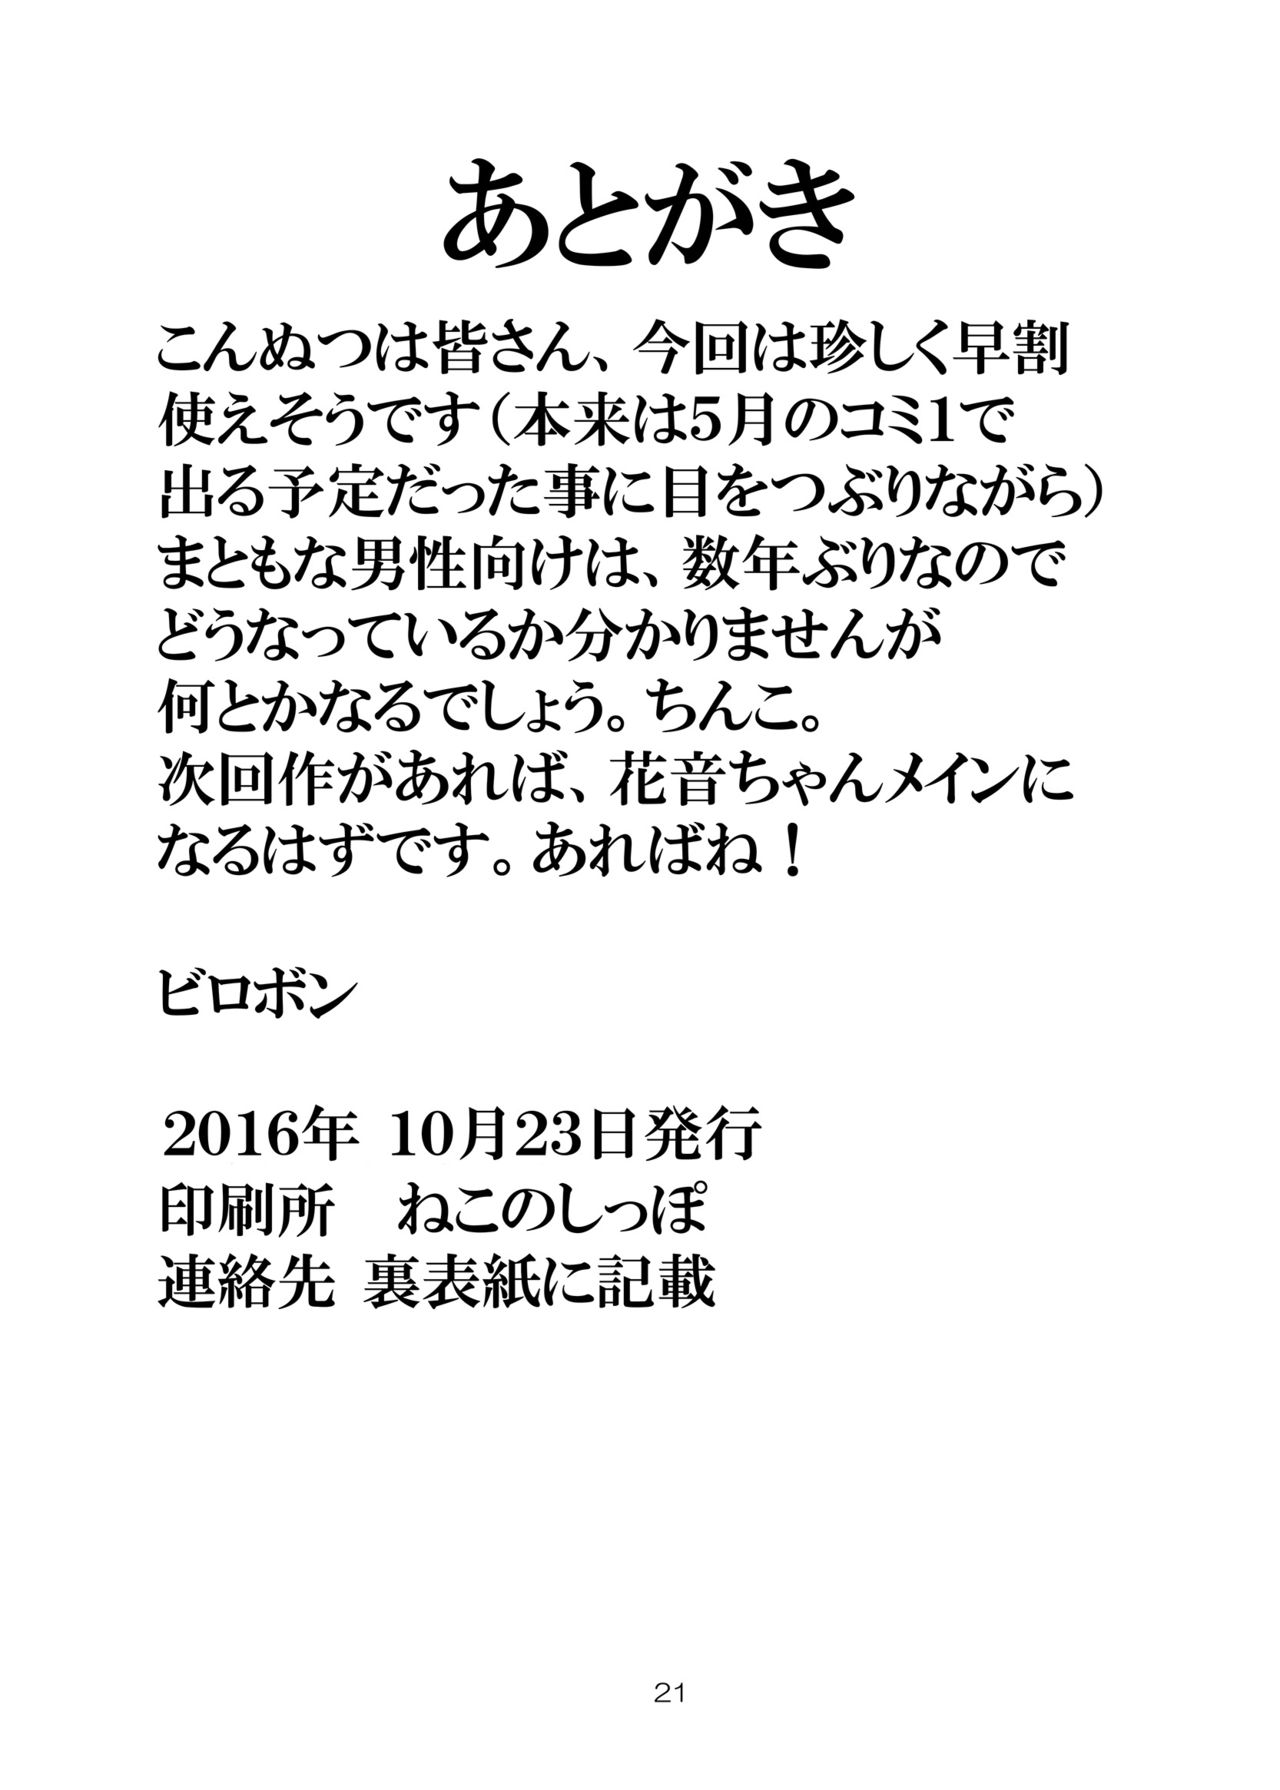 あとがき
こんぬつは皆さん、今回は珍しく早割
使えそうです（本来は5月のコミ1で
出る予定だった事に目をつぶりながら）
まともな男性向けは、数年ぶりなので
どうなっているか分かりませんが
何とかなるでしょう。ちんこ。
次回作があれば、花音ちゃんメインに
なるはずです。あればね！
ビロボン
2016年 10月23日発行
印刷所　ねこのしっぽ
連絡先 裏表紙に記載
21